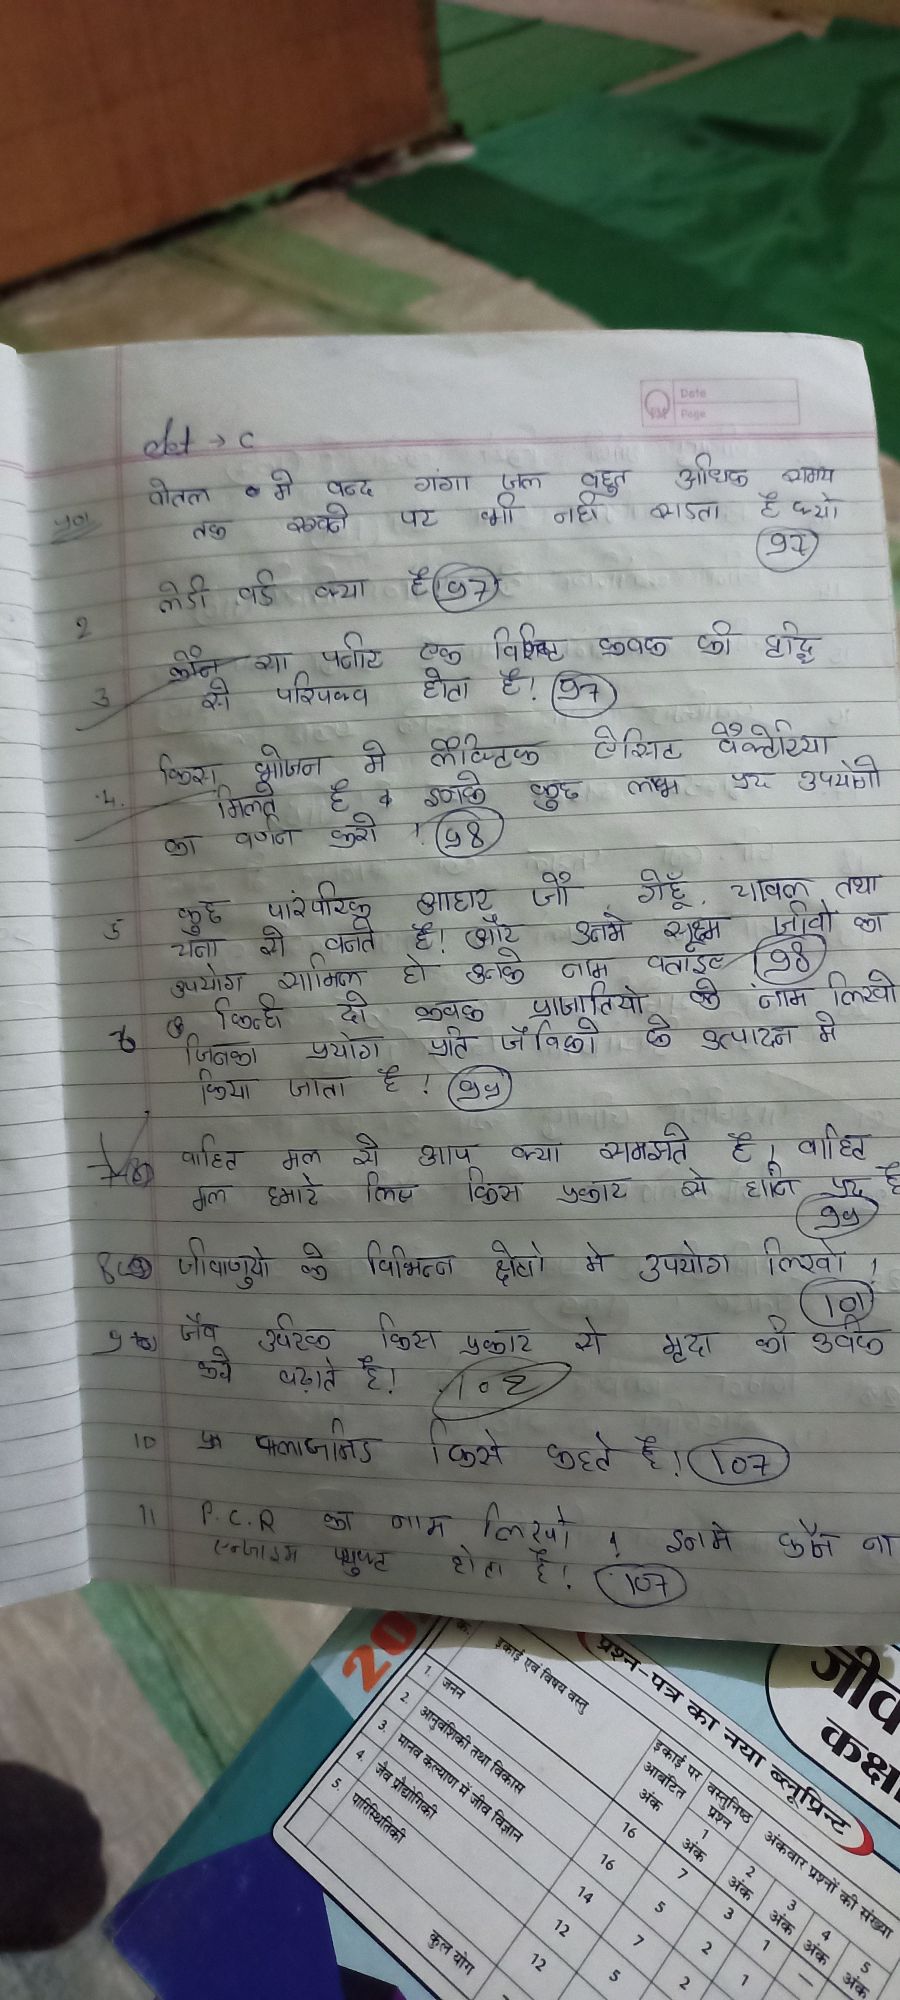 Date
Page
→ C
बोतल मे बन्द गंगा जल बहुत अधिक समय
तक रखने पर भी नही सडता है क्यो
97
2 लेडी बर्ड क्या है 97
3 कौन सा पनीर एक विशिष्ट कवक की वृद्धि
से परिपक्व होता है! 97
4. किस भोजन मे लैक्टिक ऐसिट बैक्टेरिया
मिलते है इनके कुछ लाभ प्रद उपयोगो
का वर्णन करो ! 98
5 कुछ पारंपरिक आहार जो गेहूँ, चावल तथा
चना से बनते है! और उनमे सूक्ष्म जीवो का
उपयोग सामिल हो उनके नाम बताइए 98
6 किन्ही दो कवक प्रजातियो के नाम लिखो
जिनका प्रयोग प्रति जैविको के उत्पादन मे
किया जाता है ! 99
7 वाहित मल से आप क्या समझते है, वाहित
मल हमारे लिए किस प्रकार से हानि प्रद है
99
8 जीवाणुयो के विभिन्न क्षेत्रो मे उपयोग लिखो !
101
9 जैव उर्वरक किस प्रकार से मृदा की
को बढ़ाते है! 102
10 प्र प्लाज्मिड किसे कहते है! 107
11 P.C.R का नाम लिखो इनमे कौन ना
एन्जाइम प्रयुक्त होता है! 107
20
प्रश्न-पत्र का नया ब्लूप्रिन्ट
जीव
कक्षा
क्र. इकाई एवं विषय वस्तु इकाई पर आबंटित अंक वस्तुनिष्ठ प्रश्न अंकवार प्रश्नों की संख्या
1 अंक 2 अंक 3 अंक 4 अंक 5 अंक
1. जनन 16 7
2. आनुवंशिकी तथा विकास 16 5 3 1
3. मानव कल्याण में जीव विज्ञान 14 7 2 1 —
4. जैव प्रौद्योगिकी 12 5 2
5. पारिस्थितिकी 12
कुल योग